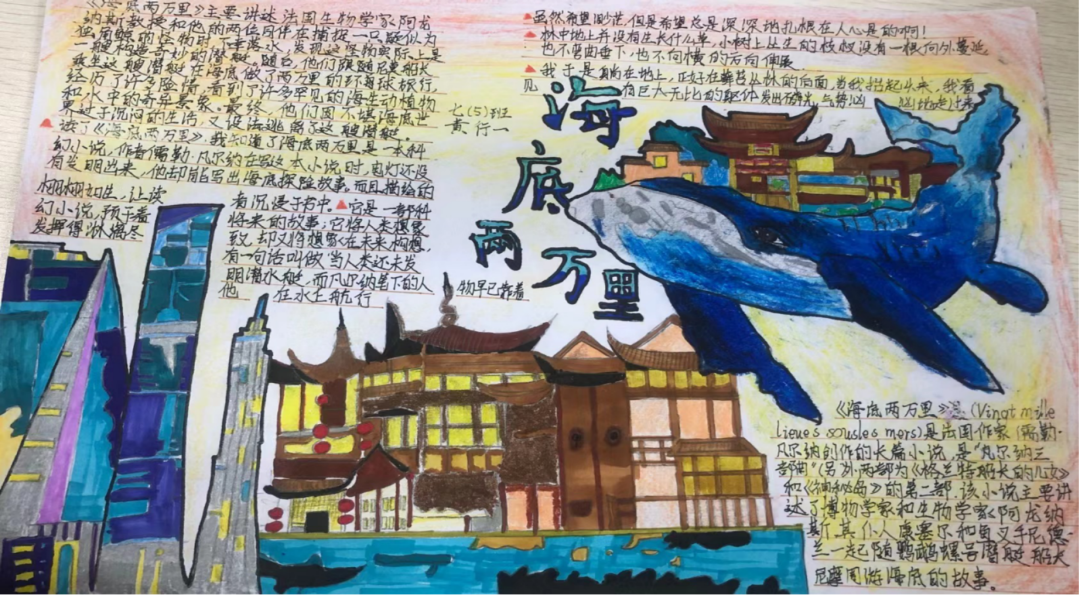 《海底两万里》主要讲述法国生物学家《阿龙
纳斯教授和他的两位同伴在捕捉一只疑似为
独角鲸的怪物时,
落水,发现这怪物实际上是
一艘构造奇妙的潜艇。随后,他们跟随尼摩船长
乘坐这艘潜艇在海底做了两万里的环球旅行,
经历了许多险情,看到了许多罕见的海生动植物
和水中的奇异景象。最终,他们因不堪海底世
界过于沉闷的生活,又设法逃离了这艘潜艇。
读了《海底两万里》,我知道了海底两万里是一本科
幻小说,作者儒勒·凡尔纳在写这本小说时,电灯还没
有发明出来,他却能写出海底探险故事,而且描绘的
栩栩如生,让读
者沉浸于书中。它是一部科
幻小说,预示着
将来的故事;它将人类想象
发挥得淋漓尽
致,却又将想象在未来构想。
有一句话叫做“当人类还未发
明潜水艇,而凡尔纳笔下的人
物早已靠着
他
在水上航行
虽然希望渺茫,但是希望总是深深地扎根在人心里的啊!
林中地上并没有生长什么草,小树上丛生的枝杈没有一根向外蔓延,
也不弯曲垂下,也不向横的方向伸展。
我于是躺在地上,正好在藓苔丛林的后面,当我抬起头来,我看
见
有巨大无比的躯体发出磷光,气势汹
汹地走过来
七(5)班
黄行一
海
底
两
万
里
《海底两万里》
(Vingt mille
lieues sous les mers)是法国作家儒勒·
凡尔纳创作的长篇小说,是“凡尔纳三
部曲”(另外两部为《格兰特船长的儿女》
和《神秘岛》的第二部。该小说主要讲
述了博物学家和生物学家《阿龙纳
斯,其仆人康塞尔和鱼叉手尼德·
兰一起随鹦鹉螺号潜艇船长
尼摩周游海底的故事。